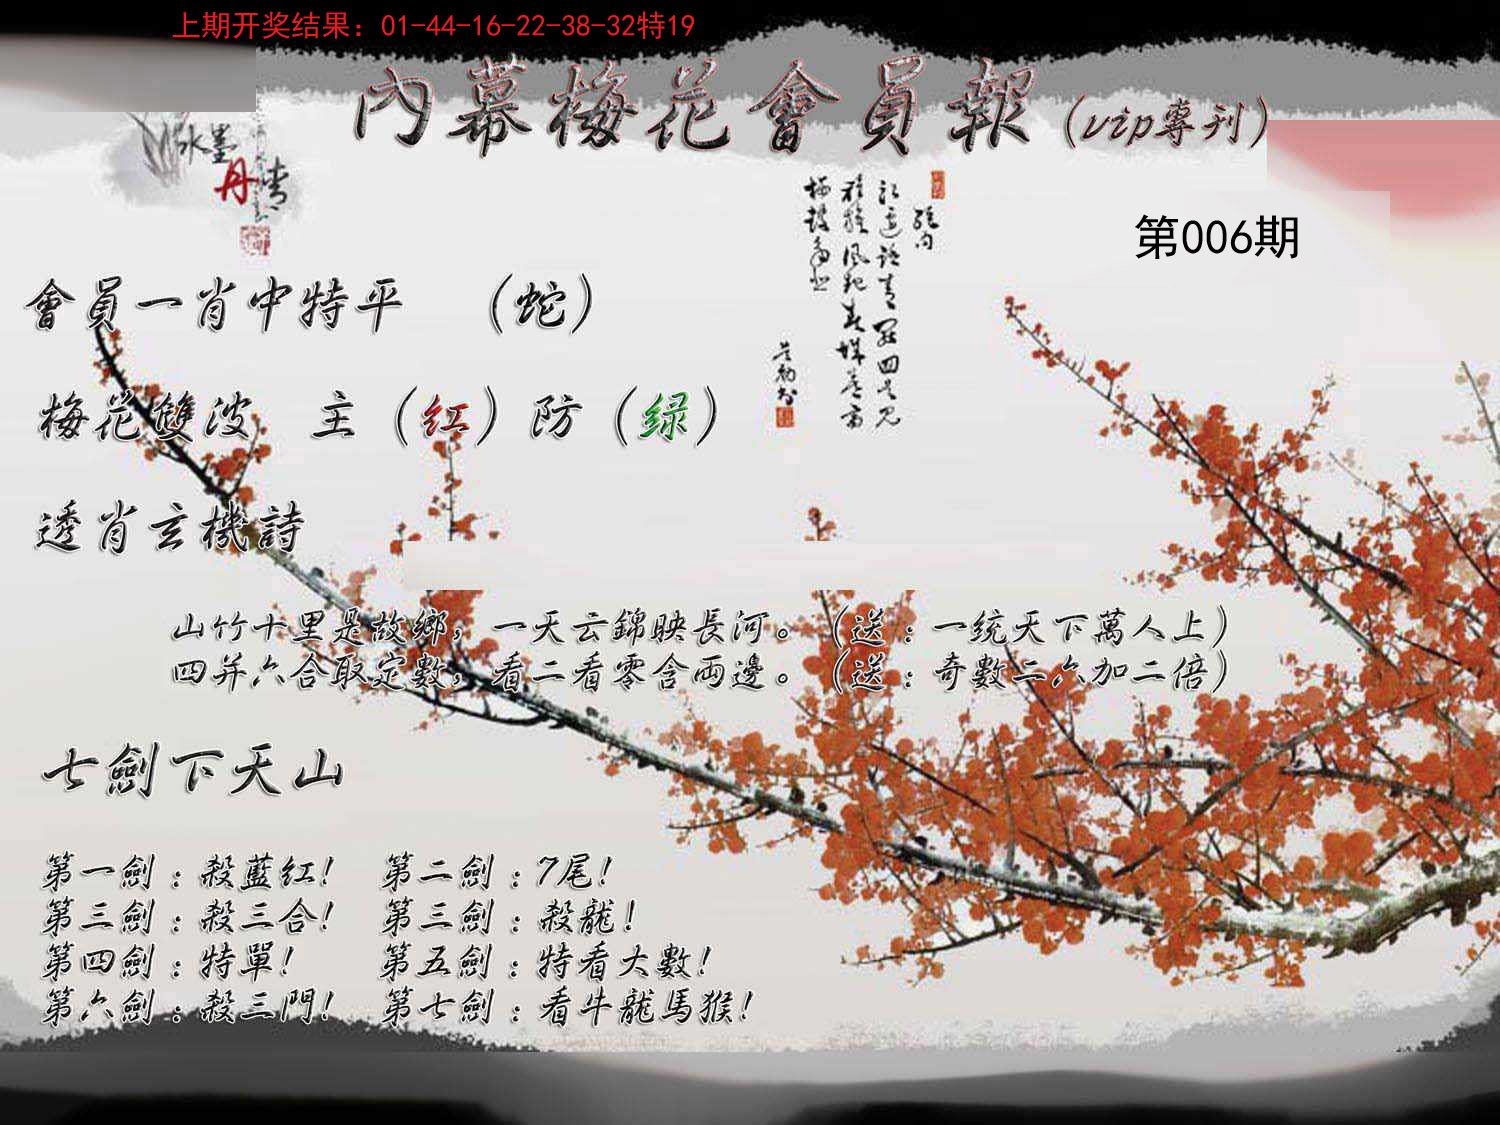 上期开奖结果：01-44-16-22-38-32特19
內幕梅花會員報（vip專刊）
水墨
丹青
第006期
會員一肖中特平 （蛇）
梅花雙波 主（红）防（绿）
透肖玄機詩
山竹十里是故鄉，一天云錦映長河。（送：一统天下萬人上）
四并六合取定數，看二看零含兩邊。（送：奇數二六加二倍）
七劍下天山
第一劍：殺藍红！ 第二劍：7尾！
第三劍：殺三合！ 第三劍：殺龍！
第四劍：特單！ 第五劍：特看大數！
第六劍：殺三門！ 第七劍：看牛龍馬猴！